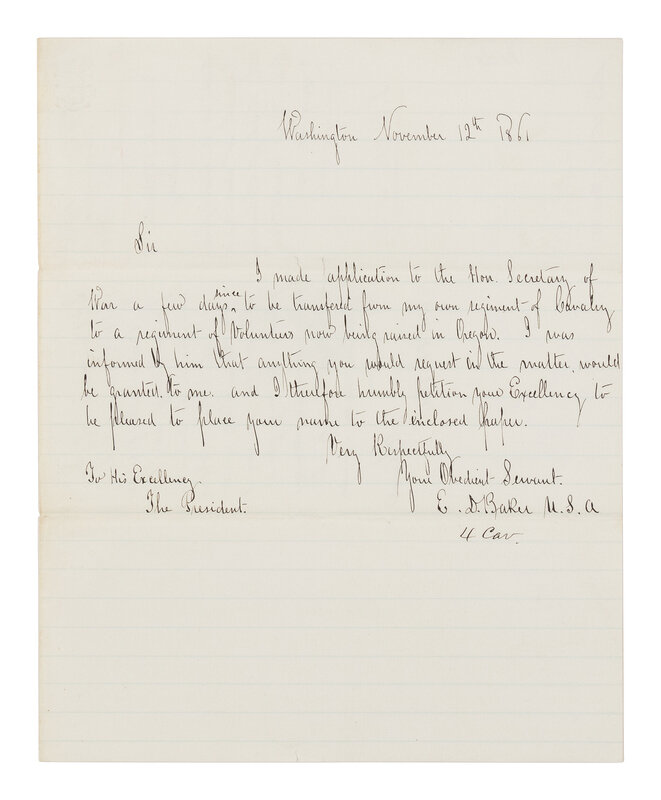 Washington November 12th 1861
Sir
I made application to the Hon. Secretary of
War a few days since to be transfered from my own regiment of Cavalry
to a regiment of Volunteers now being raised in Oregon. I was
informed by him that anything you would request in the matter, would
be granted, to me. and I therefore humbly petition your Excellency to
be pleased to place your name to the enclosed paper.
Very Respectfully
Your Obedient Servant.
To His Excellency.
The President.
E. D. Baker U.S.A
4 Cav.